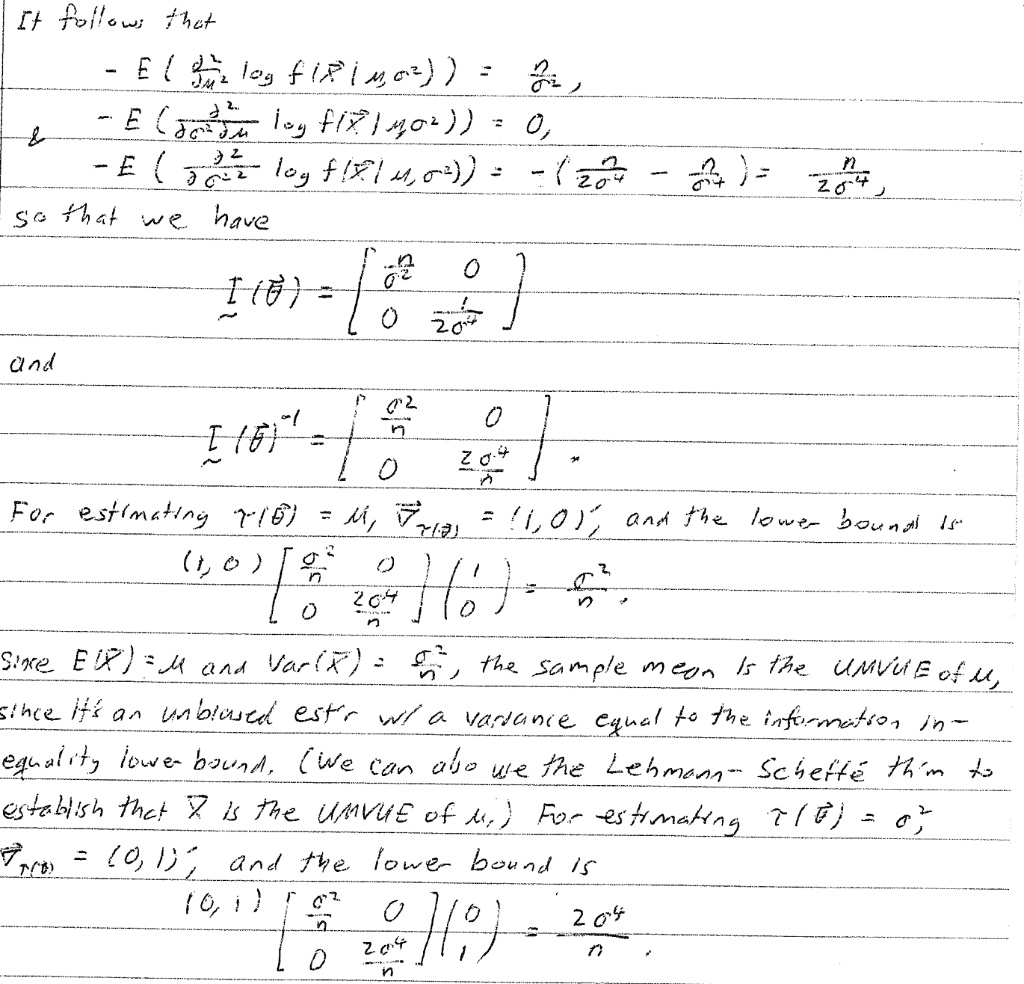 It follows that
- E ( ∂²/∂μ² log f(X⃗ | μ, σ²)) = n/σ²,
- E ( ∂²/∂σ²∂μ log f(X⃗ | μ, σ²)) = 0,
& - E ( ∂²/∂σ²² log f(X⃗ | μ, σ²)) = -( n/2σ⁴ - n/σ⁴ ) = n/2σ⁴,
so that we have
I(θ⃗) = [ n/σ² 0
0 1/2σ⁴ ]
and
I(θ⃗)⁻¹ = [ σ²/n 0
0 2σ⁴/n ].
For estimating τ(θ⃗) = μ, ∇⃗τ(θ) = (1,0)′, and the lower bound is
(1,0) [ σ²/n 0
0 2σ⁴/n ] (1
0) = σ²/n.
Since E(X̄) = μ and Var(X̄) = σ²/n, the sample mean is the UMVUE of μ,
since it's an unbiased est'r w/ a variance equal to the information in-
equality lower bound. (We can also use the Lehmann-Scheffé th'm to
establish that X̄ is the UMVUE of μ.) For estimating τ(θ⃗) = σ²,
∇⃗τ(θ) = (0,1)′, and the lower bound is
(0,1) [ σ²/n 0
0 2σ⁴/n ] (0
1) = 2σ⁴/n.